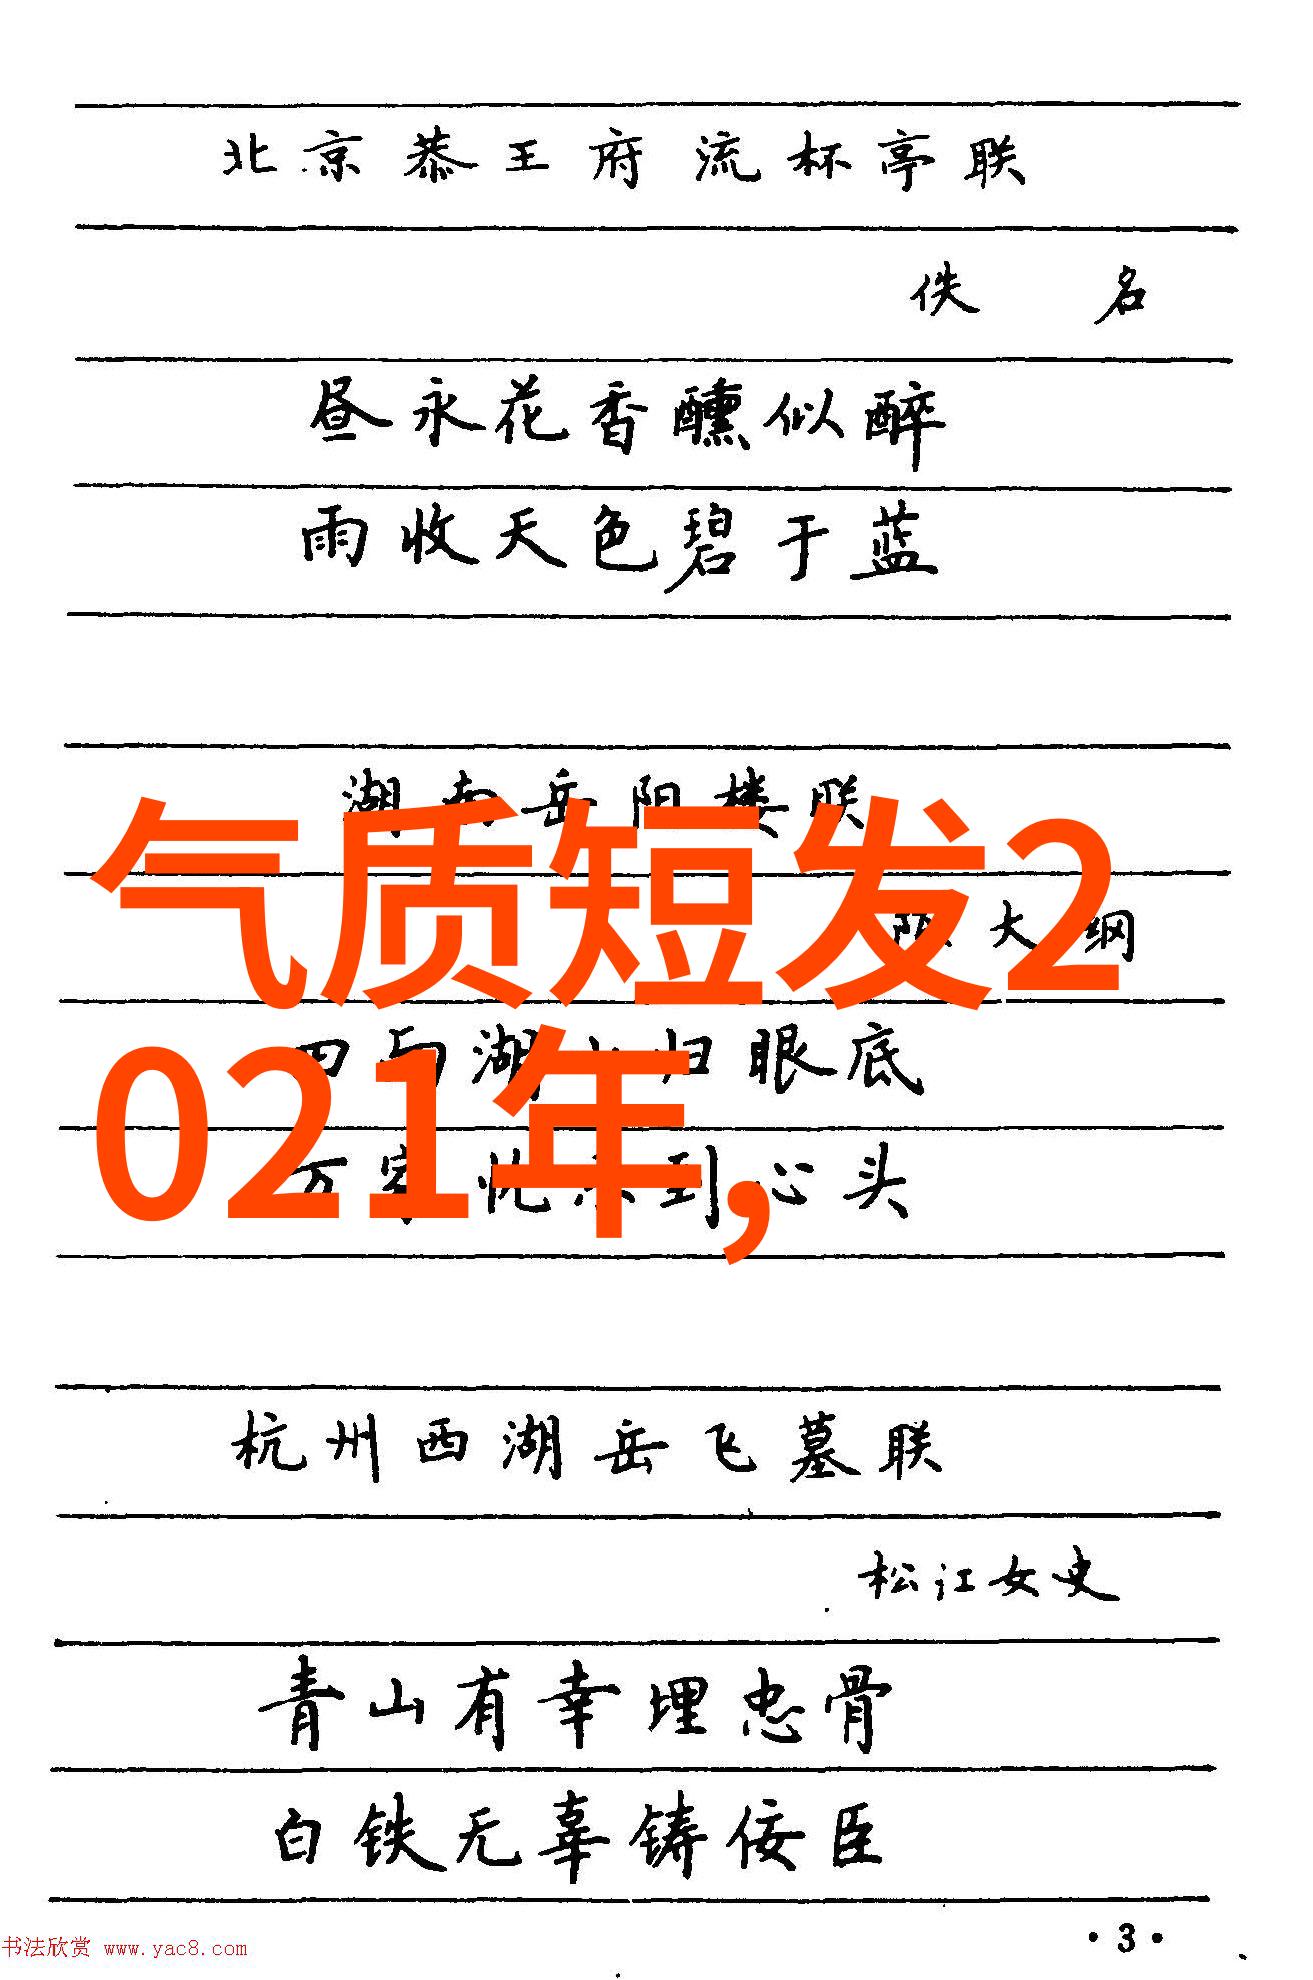 北京恭王府流杯亭联
佚名
昼永花香醺似醉
雨收天色碧于蓝
湖南岳阳楼联
气质短发2
陈大纲
四面湖山归眼底
021年,
万家忧乐到心头
杭州西湖岳飞墓联
松江女史
青山有幸埋忠骨
白铁无辜铸佞臣
·3·
书法欣赏 www.yac8.com